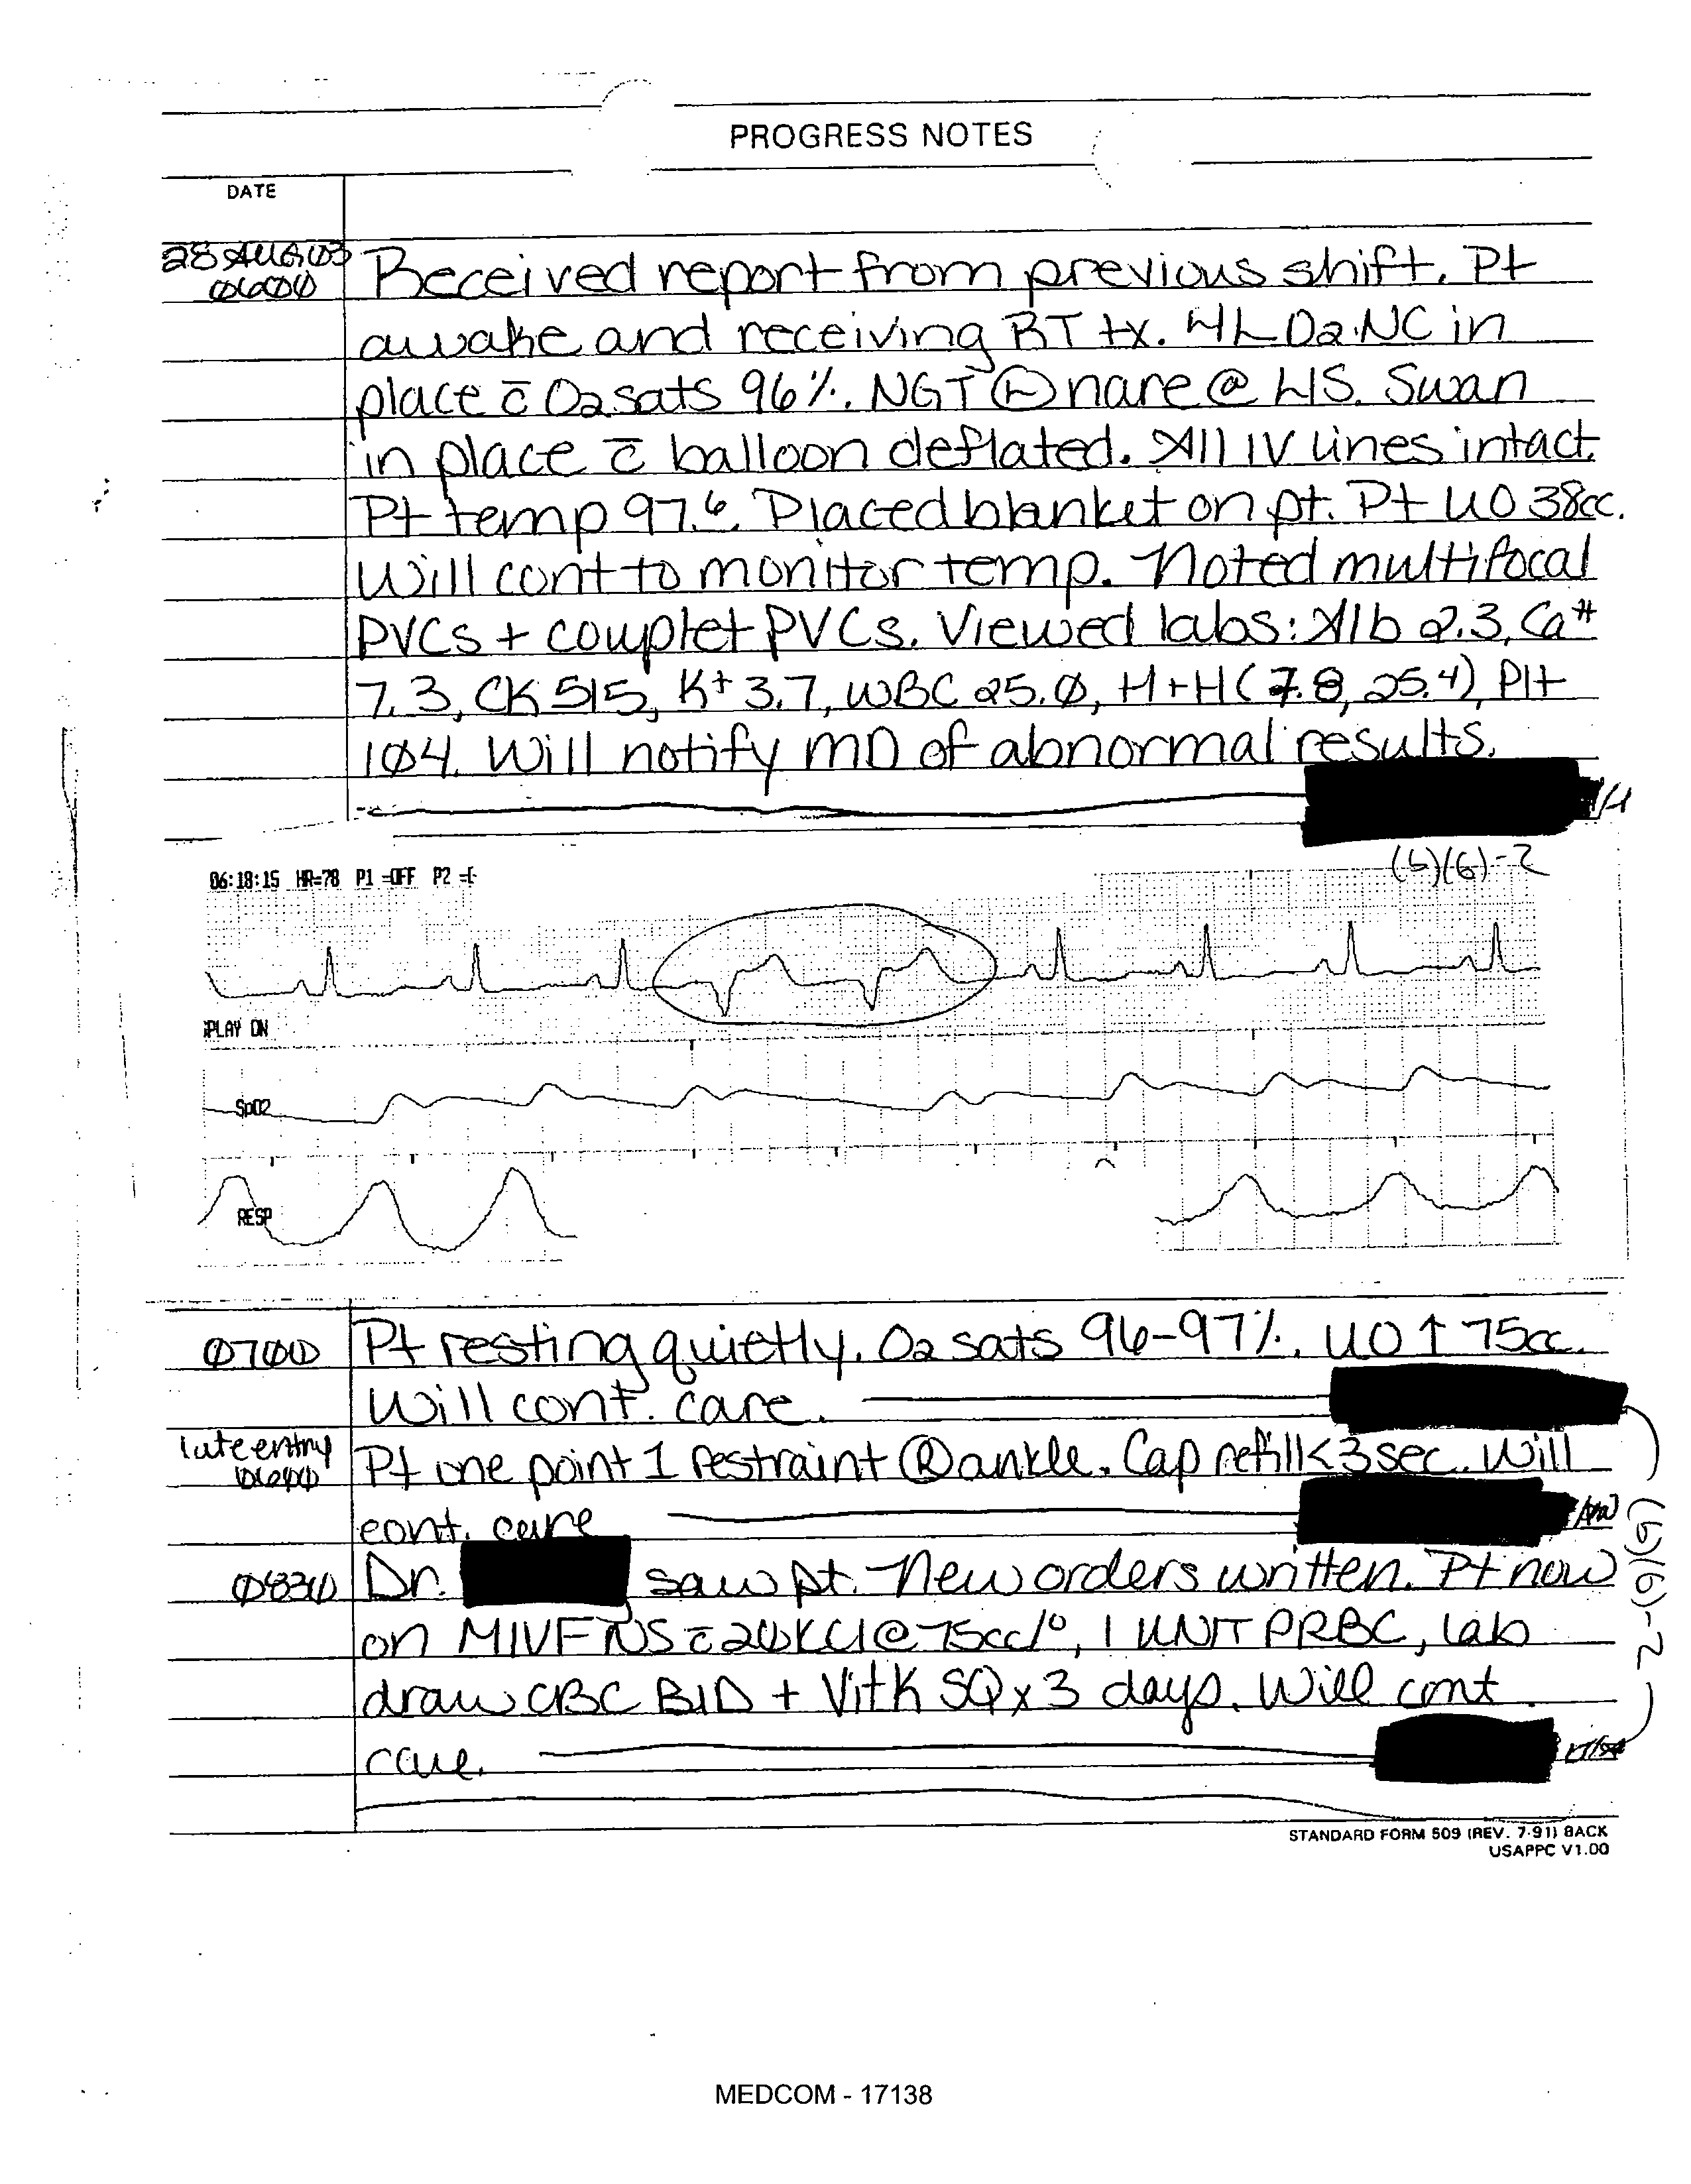 PROGRESS NOTES
DATE
28 AUG 03
0600
Received report from previous shift. Pt
awake and receiving RT tx. 4L O2 NC in
place c̄ O2 sats 96%. NGT Ⓛ nare @ LIS. Swan
in place c̄ balloon deflated. All IV lines intact.
Pt temp 97.6. Placed blanket on pt. Pt UO 38cc.
Will cont to monitor temp. Noted multifocal
PVCs + couplet PVCs. Viewed labs: Alb 2.3, Ca++
7.3, CK 515, K+ 3.7, WBC 25.0, H+H (7.8, 25.4), Plt
104. Will notify MD of abnormal results.
(b)(6)-2
06:18:15 HR=78 P1 =OFF P2 =
PLAY ON
SpO2
RESP
0700
Pt resting quietly. O2 sats 96-97%. UO ↑ 75cc.
Will cont. care.
late entry
0600
Pt one point 1 restraint Ⓡ ankle. Cap refill <3 sec. Will
cont. care
0830
Dr. saw pt. New orders written. Pt now
on MIVF NS c̄ 20KCl @ 75cc/°, 1 UNIT PRBC, lab
draw CBC BID + Vit K SQ x 3 days. Will cont
care.
(b)(6)-2
STANDARD FORM 509 (REV. 7-91) BACK
USAPPC V1.00
MEDCOM - 17138